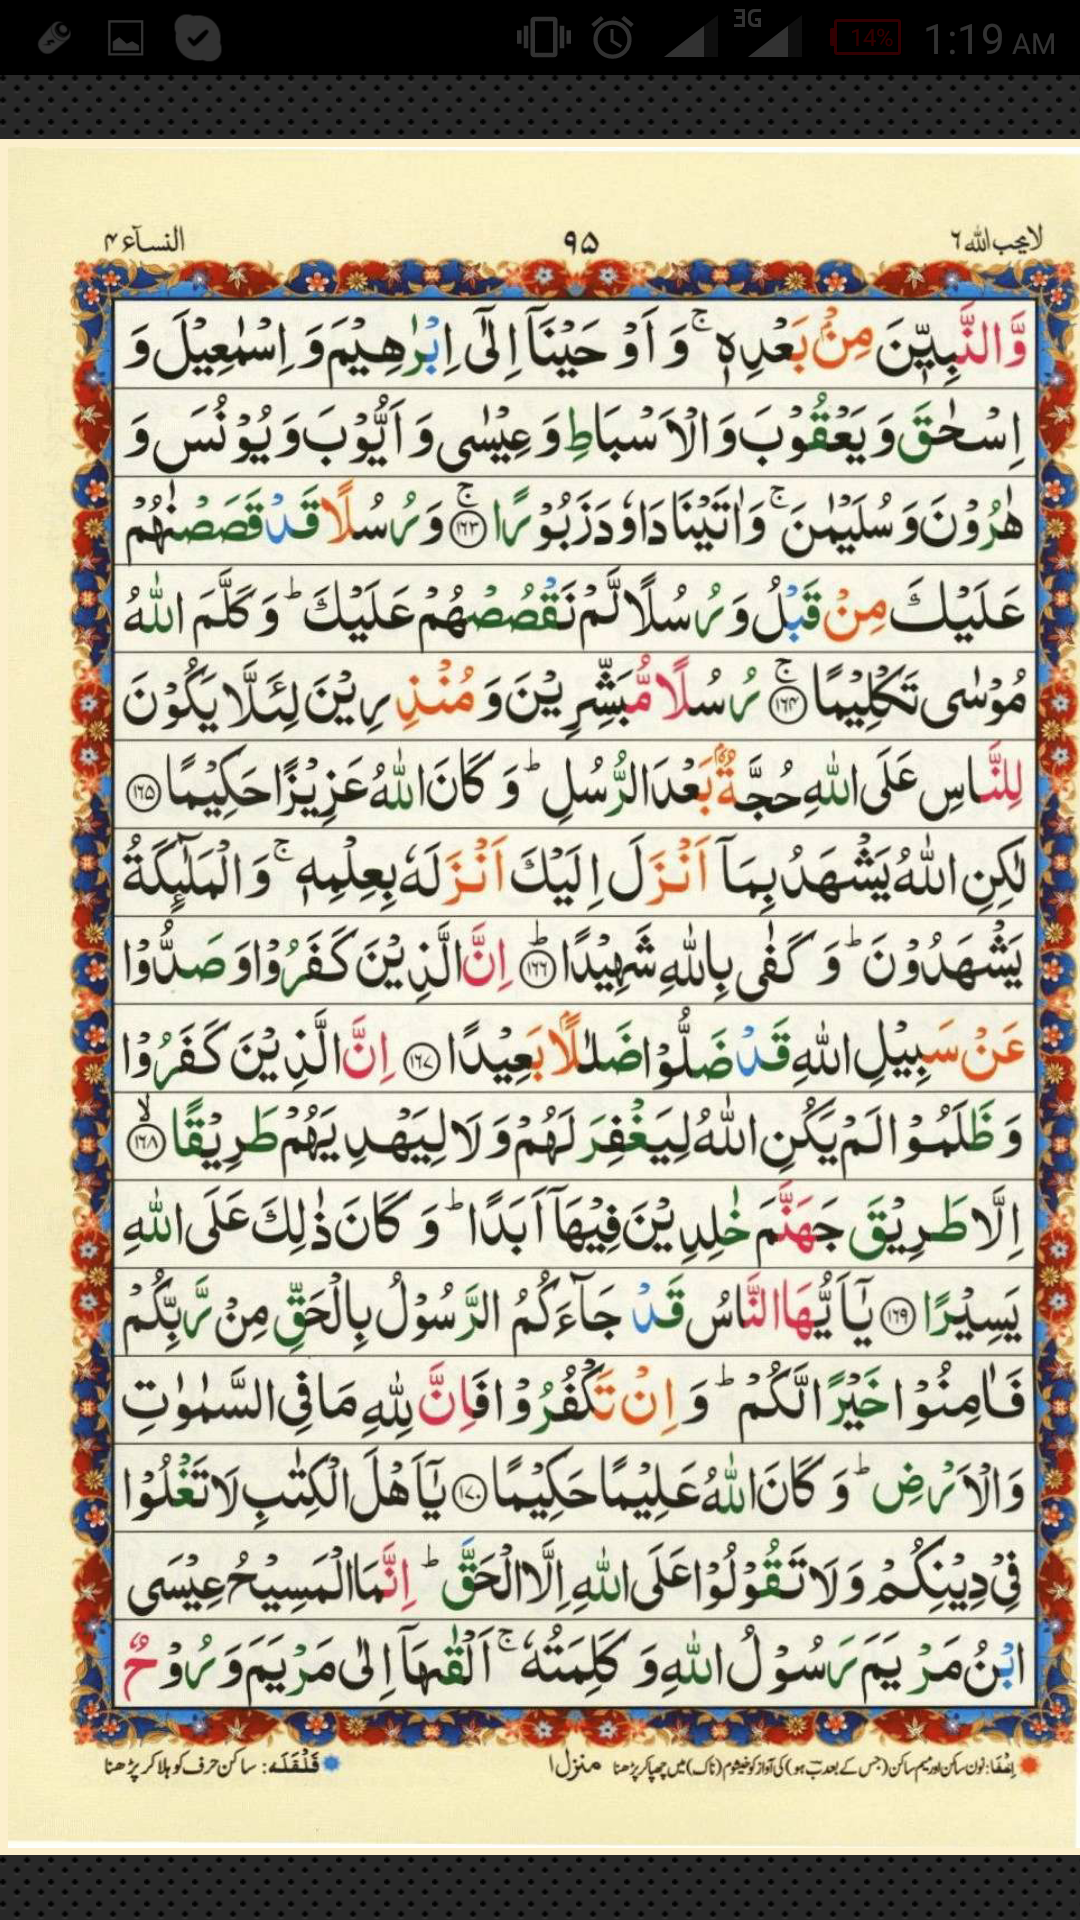 3G
14%
1:19 AM
لا یحب اللہ ٦
٩٥
النسآء ٤
وَّالنَّبِیّٖنَ مِنْۢ بَعْدِهٖ ۚ وَ اَوْحَیْنَاۤ اِلٰۤى اِبْرٰهِیْمَ وَ اِسْمٰعِیْلَ وَ
اِسْحٰقَ وَ یَعْقُوْبَ وَ الْاَسْبَاطِ وَ عِیْسٰى وَ اَیُّوْبَ وَ یُوْنُسَ وَ
هٰرُوْنَ وَ سُلَیْمٰنَ ۚ وَ اٰتَیْنَا دَاوٗدَ زَبُوْرًا ۚ﴿۱۶۳﴾ وَ رُسُلًا قَدْ قَصَصْنٰهُمْ
عَلَیْكَ مِنْ قَبْلُ وَ رُسُلًا لَّمْ نَقْصُصْهُمْ عَلَیْكَ ؕ وَ كَلَّمَ اللّٰهُ
مُوْسٰى تَكْلِیْمًا ۚ﴿۱۶۴﴾ رُسُلًا مُّبَشِّرِیْنَ وَ مُنْذِرِیْنَ لِئَلَّا یَكُوْنَ
لِلنَّاسِ عَلَى اللّٰهِ حُجَّةٌۢ بَعْدَ الرُّسُلِ ؕ وَ كَانَ اللّٰهُ عَزِیْزًا حَكِیْمًا ﴿۱۶۵﴾
لٰكِنِ اللّٰهُ یَشْهَدُ بِمَاۤ اَنْزَلَ اِلَیْكَ اَنْزَلَهٗ بِعِلْمِهٖ ۚ وَ الْمَلٰٓىِٕكَةُ
یَشْهَدُوْنَ ؕ وَ كَفٰى بِاللّٰهِ شَهِیْدًا ؕ﴿۱۶۶﴾ اِنَّ الَّذِیْنَ كَفَرُوْا وَ صَدُّوْا
عَنْ سَبِیْلِ اللّٰهِ قَدْ ضَلُّوْا ضَلٰلًۢا بَعِیْدًا ﴿۱۶۷﴾ اِنَّ الَّذِیْنَ كَفَرُوْا
وَ ظَلَمُوْا لَمْ یَكُنِ اللّٰهُ لِیَغْفِرَ لَهُمْ وَ لَا لِیَهْدِیَهُمْ طَرِیْقًا ۙ﴿۱۶۸﴾
اِلَّا طَرِیْقَ جَهَنَّمَ خٰلِدِیْنَ فِیْهَاۤ اَبَدًا ؕ وَ كَانَ ذٰلِكَ عَلَى اللّٰهِ
یَسِیْرًا ﴿۱۶۹﴾ یٰۤاَیُّهَا النَّاسُ قَدْ جَآءَكُمُ الرَّسُوْلُ بِالْحَقِّ مِنْ رَّبِّكُمْ
فَاٰمِنُوْا خَیْرًا لَّكُمْ ؕ وَ اِنْ تَكْفُرُوْا فَاِنَّ لِلّٰهِ مَا فِی السَّمٰوٰتِ
وَ الْاَرْضِ ؕ وَ كَانَ اللّٰهُ عَلِیْمًا حَكِیْمًا ﴿۱۷۰﴾ یٰۤاَهْلَ الْكِتٰبِ لَا تَغْلُوْا
فِیْ دِیْنِكُمْ وَ لَا تَقُوْلُوْا عَلَى اللّٰهِ اِلَّا الْحَقَّ ؕ اِنَّمَا الْمَسِیْحُ عِیْسَى
ابْنُ مَرْیَمَ رَسُوْلُ اللّٰهِ وَ كَلِمَتُهٗ ۚ اَلْقٰىهَاۤ اِلٰى مَرْیَمَ وَ رُوْحٌ
اِخفَا: نون ساکن اور میم ساکن (جس کے بعد ب ہو) کی آواز کو خیشوم (ناک) میں چھپا کر پڑھنا
منزل ۱
قَلْقَلَه: ساکن حرف کو ہلا کر پڑھنا